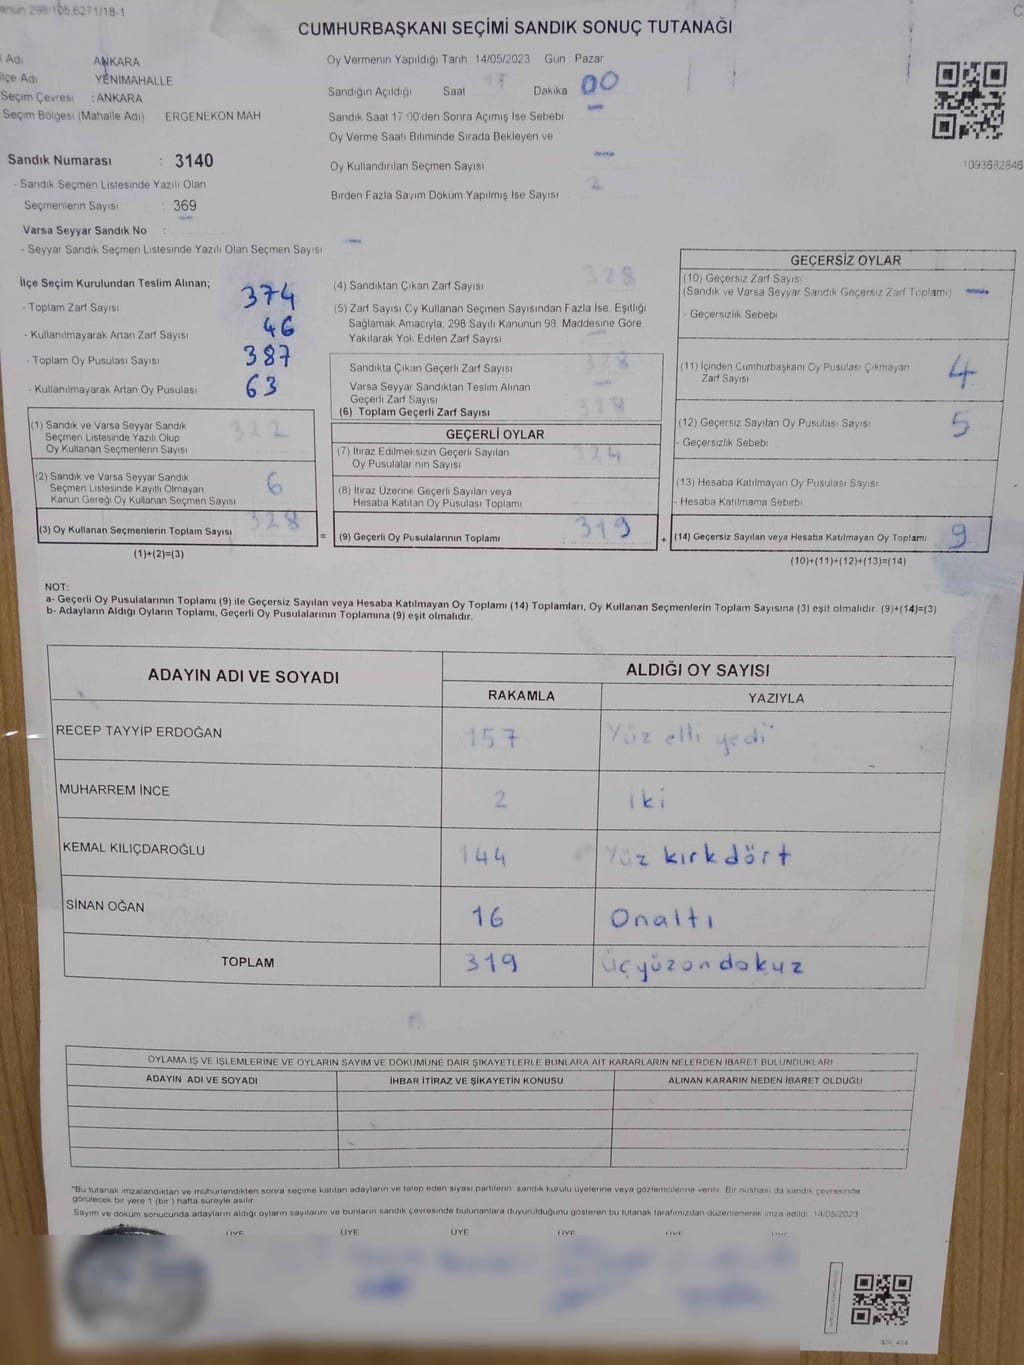 anun 298/105,6271/18-1
CUMHURBAŞKANI SEÇİMİ SANDIK SONUÇ TUTANAĞI
Adı ANKARA
lçe Adı YENİMAHALLE
Seçim Çevresi : ANKARA
Seçim Bölgesi (Mahalle Adı) ERGENEKON MAH
Oy Vermenin Yapıldığı Tarih 14/05/2023 Gün : Pazar
Sandığın Açıldığı Saat 17 Dakika 00
Sandık Saat 17 00'den Sonra Açımış İse Sebebi
Oy Verme Saati Bitiminde Sırada Bekleyen ve
Oy Kullandırılan Seçmen Sayısı
Birden Fazla Sayım Döküm Yapılmış İse Sayısı 2
1093682846
Sandık Numarası : 3140
- Sandık Seçmen Listesinde Yazılı Olan
Seçmenlerin Sayısı : 369
Varsa Seyyar Sandık No :
- Seyyar Sandık Seçmen Listesinde Yazılı Olan Seçmen Sayısı
İlçe Seçim Kurulundan Teslim Alınan;
- Toplam Zarf Sayısı 374
- Kullanılmayarak Artan Zarf Sayısı 46
- Toplam Oy Pusulası Sayısı 387
- Kullanılmayarak Artan Oy Pusulası 63
(1) Sandık ve Varsa Seyyar Sandık
Seçmen Listesinde Yazılı Olup
Oy Kullanan Seçmenlerin Sayısı 322
(2) Sandık ve Varsa Seyyar Sandık
Seçmen Listesinde Kayıtlı Olmayan
Kanun Gereği Oy Kullanan Seçmen Sayısı 6
(3) Oy Kullanan Seçmenlerin Toplam Sayısı 328
(1)+(2)=(3)
=
(4) Sandıktan Çıkan Zarf Sayısı 328
(5) Zarf Sayısı Cy Kullanan Seçmen Sayısından Fazla İse. Eşitliği
Sağlamak Amacıyla, 298 Sayılı Kanunun 98. Maddesine Göre
Yakılarak Yok Edilen Zarf Sayısı
Sandıkta Çıkan Geçerli Zarf Sayısı 328
Varsa Seyyar Sandıktan Teslim Alınan
Geçerli Zarf Sayısı
(6) Toplam Geçerli Zarf Sayısı 328
GEÇERLİ OYLAR
(7) İtiraz Edilmeksizin Geçerli Sayılan
Oy Pusulalar nın Sayısı 324
(8) İtiraz Üzerine Geçerli Sayılan veya
Hesaba Katılan Oy Pusulası Toplamı
(9) Geçerli Oy Pusulalarının Toplamı 319
+
GEÇERSİZ OYLAR
(10) Geçersiz Zarf Sayısı
(Sandık ve Varsa Seyyar Sandık Geçersiz Zarf Toplamı)
- Geçersizlik Sebebi
(11) İçinden Cumhurbaşkanı Oy Pusulası Çıkmayan
Zarf Sayısı 4
(12) Geçersiz Sayılan Oy Pusulası Sayısı 5
- Geçersizlik Sebebi
(13) Hesaba Katılmayan Oy Pusulası Sayısı
- Hesaba Katılmama Sebebi
(14) Geçersiz Sayılan veya Hesaba Katılmayan Oy Toplamı 9
(10)+(11)+(12)+(13)=(14)
NOT:
a- Geçerli Oy Pusulalarının Toplamı (9) ile Geçersiz Sayılan veya Hesaba Katılmayan Oy Toplamı (14) Toplamları, Oy Kullanan Seçmenlerin Toplam Sayısına (3) eşit olmalıdır. (9)+(14)=(3)
b- Adayların Aldığı Oyların Toplamı, Geçerli Oy Pusulalarının Toplamına (9) eşit olmalıdır.
ADAYIN ADI VE SOYADI ALDIĞI OY SAYISI
RAKAMLA YAZIYLA
RECEP TAYYİP ERDOĞAN 157 Yüz elli yedi
MUHARREM İNCE 2 iki
KEMAL KILIÇDAROĞLU 144 Yüz kırkdört
SİNAN OĞAN 16 Onaltı
TOPLAM 319 üçyüzondokuz
OYLAMA İŞ VE İŞLEMLERİNE VE OYLARIN SAYIM VE DÖKÜMÜNE DAİR ŞİKAYETLERLE BUNLARA AİT KARARLARIN NELERDEN İBARET BULUNDUKLARI
ADAYIN ADI VE SOYADI İHBAR İTİRAZ VE ŞİKAYETİN KONUSU ALINAN KARARIN NEDEN İBARET OLDUĞU
"Bu tutanak imzalandıktan ve mühürlendikten sonra seçime katılan adayların ve talep eden siyasi partilerin sandık kurulu üyelerine veya gözlemcilerine verilir. Bir nüshası da sandık çevresinde
görülecek bir yere 1 (bir ) hafta süreyle asılır
Sayım ve döküm sonucunda adayların aldığı oyların sayılarını ve bunların sandık çevresinde bulunanlara duyurulduğunu gösteren bu tutanak tarafımızdan düzenlenerek imza edildi. 14/05/2023
ÜYE ÜYE ÜYE ÜYE ÜYE